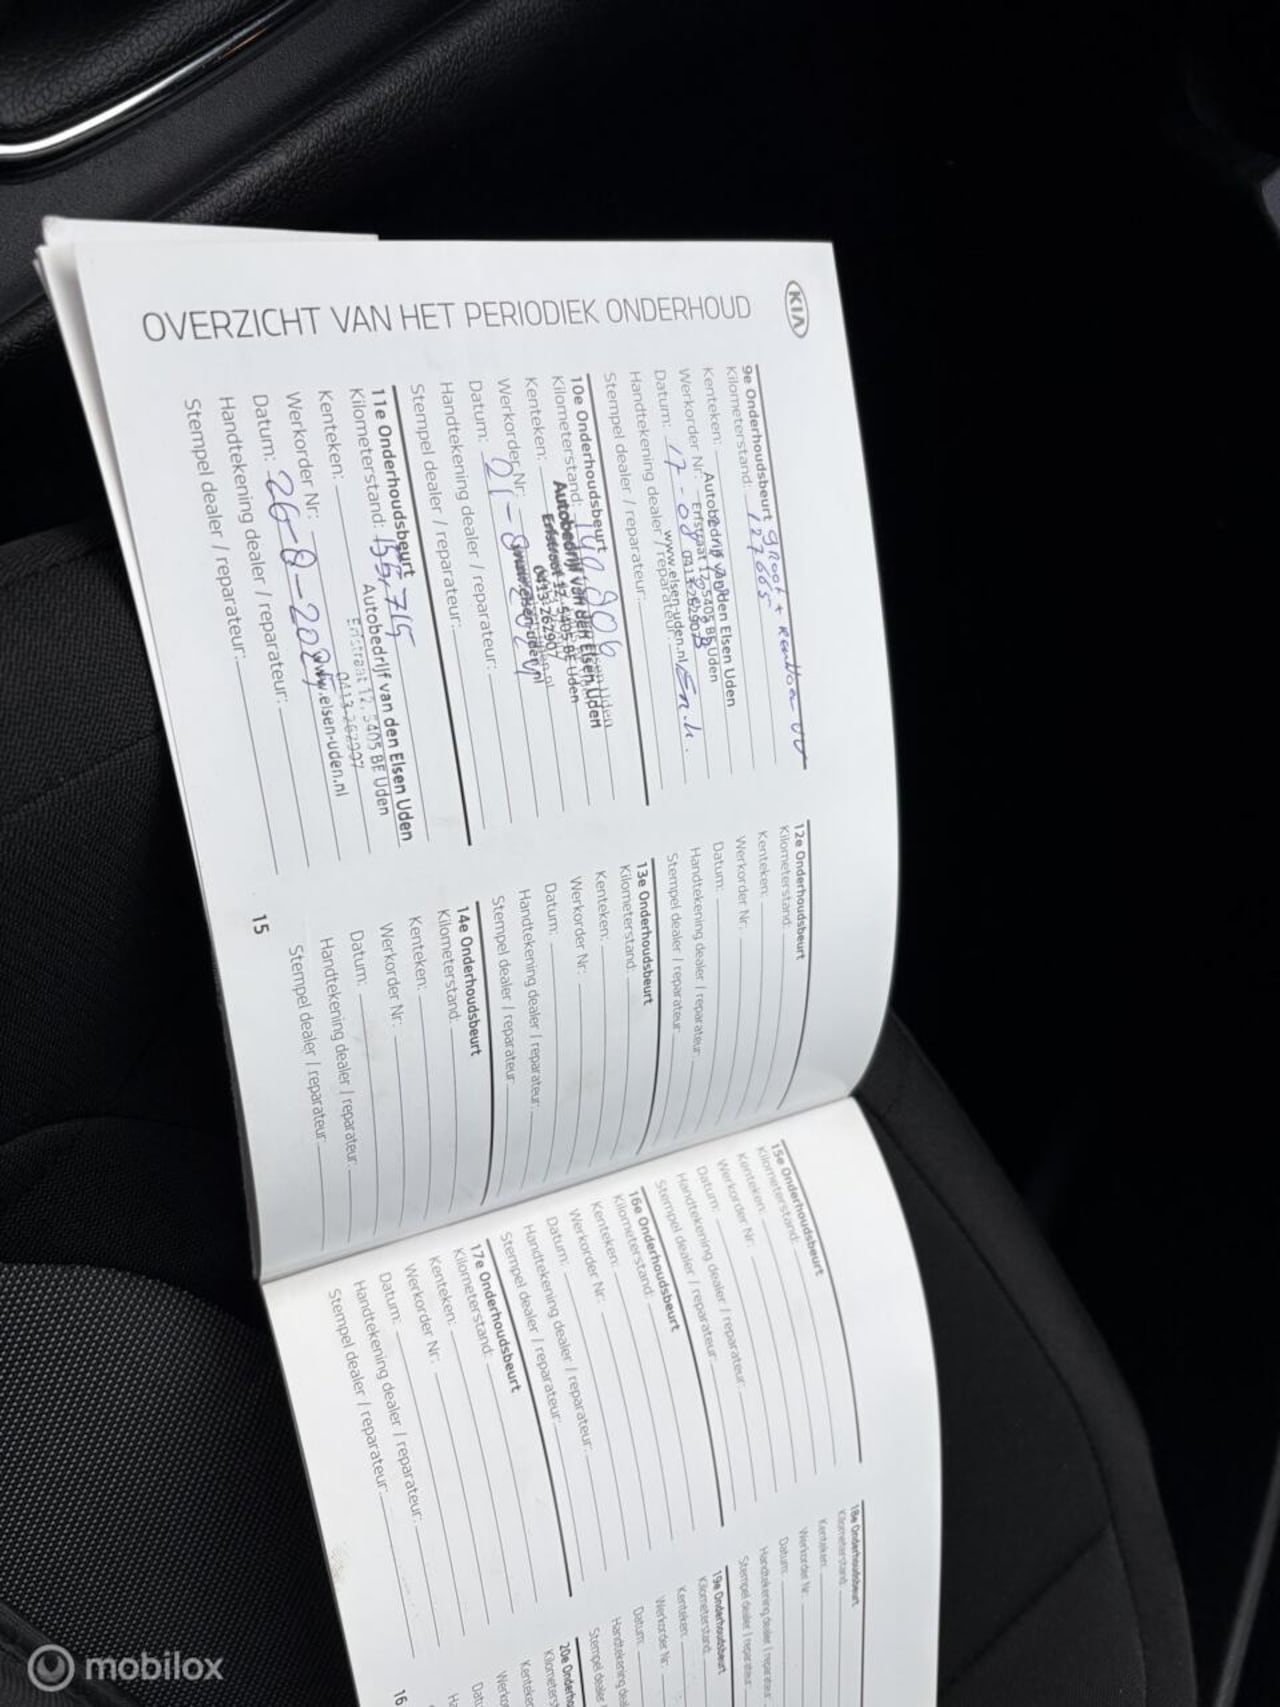 KIA
OVERZICHT VAN HET PERIODIEK ONDERHOUD
9e Onderhoudsbeurt groot +
Kilometerstand: 127665
Kenteken:
Werkorder Nr:
Datum: 17-08
Handtekening dealer / reparateur:
Stempel dealer / reparateur:
Autobedrijf van den Elsen Uden
Erfstraat 12, 5405 BE Uden
0413-262907
www.elsen-uden.nl
10e Onderhoudsbeurt
Kilometerstand:
Kenteken:
Werkorder Nr:
Datum: 21-8-2024
Handtekening dealer / reparateur:
Stempel dealer / reparateur:
Autobedrijf van den Elsen Uden
Erfstraat 12, 5405 BE Uden
0413-262907
www.elsen-uden.nl
11e Onderhoudsbeurt
Kilometerstand: 155,715
Kenteken:
Werkorder Nr:
Datum: 26-8-2025
Handtekening dealer / reparateur:
Stempel dealer / reparateur:
Autobedrijf van den Elsen Uden
Erfstraat 12, 5405 BE Uden
0413-262907
www.elsen-uden.nl
12e Onderhoudsbeurt
Kilometerstand:
Kenteken:
Werkorder Nr:
Datum:
Handtekening dealer / reparateur:
Stempel dealer / reparateur:
13e Onderhoudsbeurt
Kilometerstand:
Kenteken:
Werkorder Nr:
Datum:
Handtekening dealer / reparateur:
Stempel dealer / reparateur:
14e Onderhoudsbeurt
Kilometerstand:
Kenteken:
Werkorder Nr:
Datum:
Handtekening dealer / reparateur:
Stempel dealer / reparateur:
15
15e Onderhoudsbeurt
Kilometerstand:
Kenteken:
Werkorder Nr:
Datum:
Handtekening dealer / reparateur:
Stempel dealer / reparateur:
16e Onderhoudsbeurt
Kilometerstand:
Kenteken:
Werkorder Nr:
Datum:
Handtekening dealer / reparateur:
Stempel dealer / reparateur:
17e Onderhoudsbeurt
Kilometerstand:
Kenteken:
Werkorder Nr:
Datum:
Handtekening dealer / reparateur:
Stempel dealer / reparateur:
18e Onderhoudsbeurt
Kilometerstand:
Kenteken:
Werkorder Nr:
Datum:
Handtekening dealer / reparateur:
Stempel dealer / reparateur:
19e Onderhoudsbeurt
Kilometerstand:
Kenteken:
Werkorder Nr:
Datum:
Handtekening deal
Stempel dealer /
20e Onderho
Kilometerst
Kenteken
Werko
Datu
16
mobilox